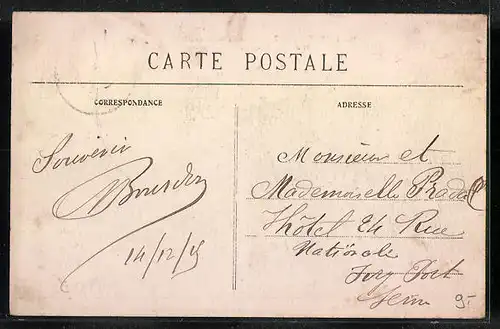 CARTE POSTALE
CORRESPONDANCE
ADRESSE
Souvenir
Bourdon
14/12/15
Monsieur et
Mademoiselle Pradel
Hôtel 24 Rue
Nationale
Ivry Port
Seine
95.